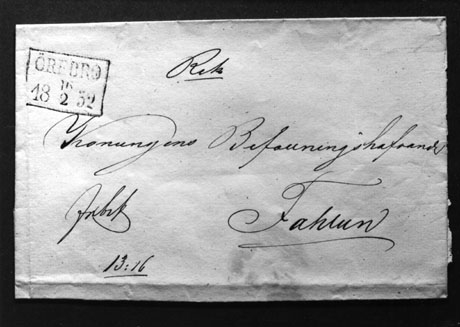 ÖREBRO
16
18 2 52
Rek
Konungens Befallningshafvande
Fahlun
13:16